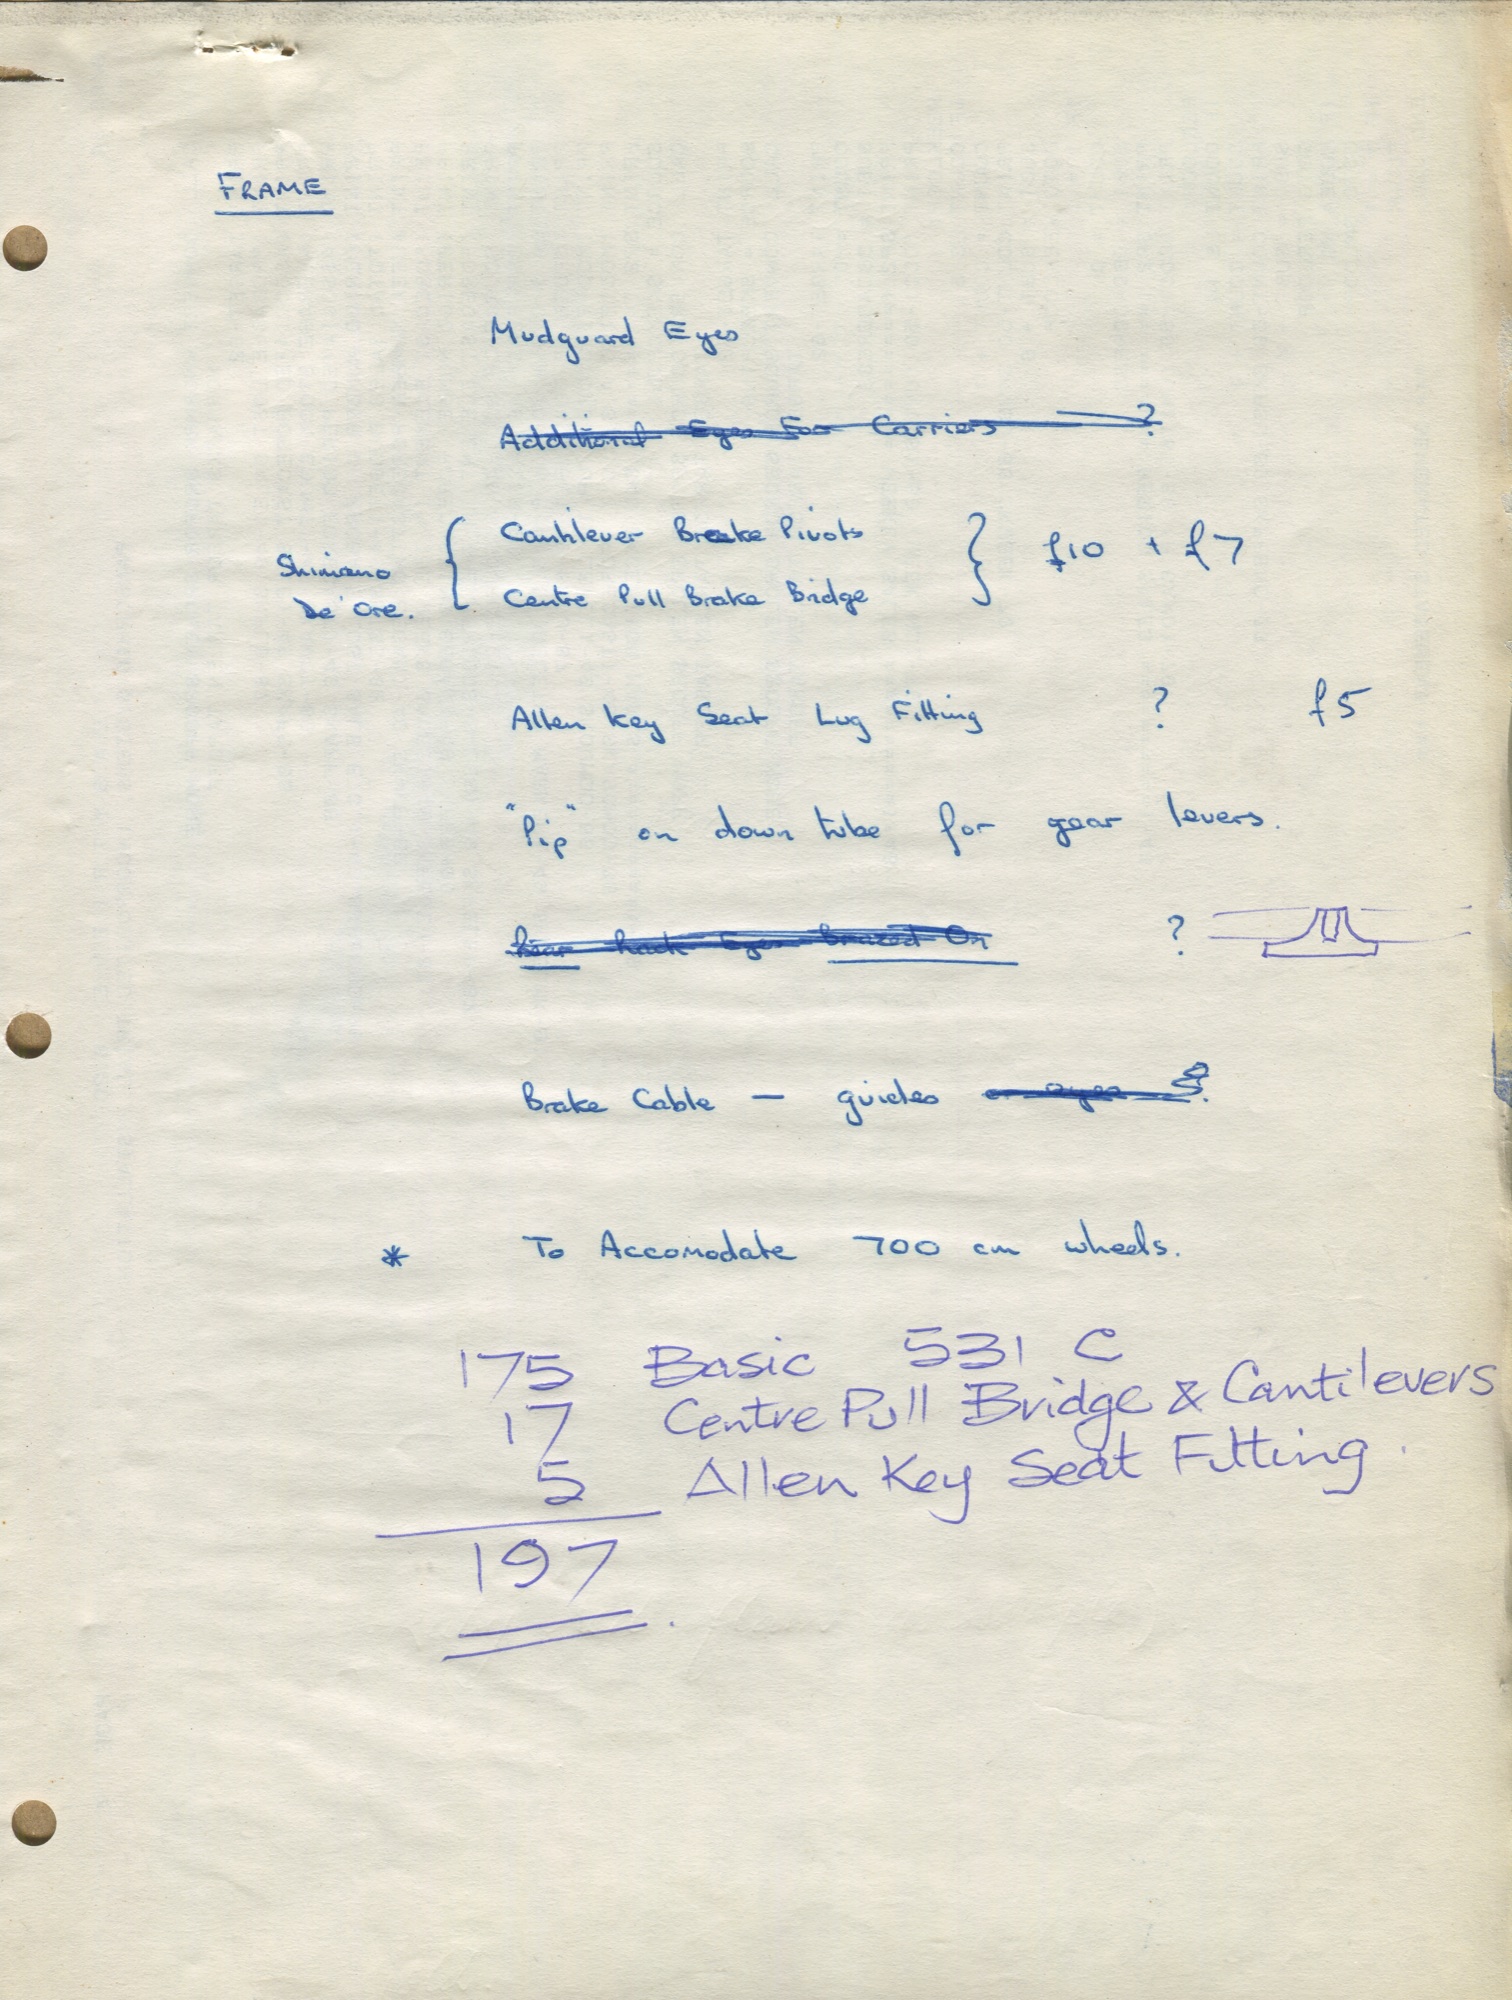 FRAME
Mudguard Eyes
Additional Eyes For Carriers ?
Cantilever Brake Pivots
Shimano
De'Ore.
£10 + £7
Centre Pull Brake Bridge
Allen Key Seat Lug Fitting ? £5
"Pip" on down tube for gear levers.
Rear Rack Eyes Brazed On ?
Brake Cable - guides or eyes ?
* To Accomodate 700 cm wheels.
175 Basic 531 C
17 Centre Pull Bridge & Cantilevers
5 Allen Key Seat Fitting.
197